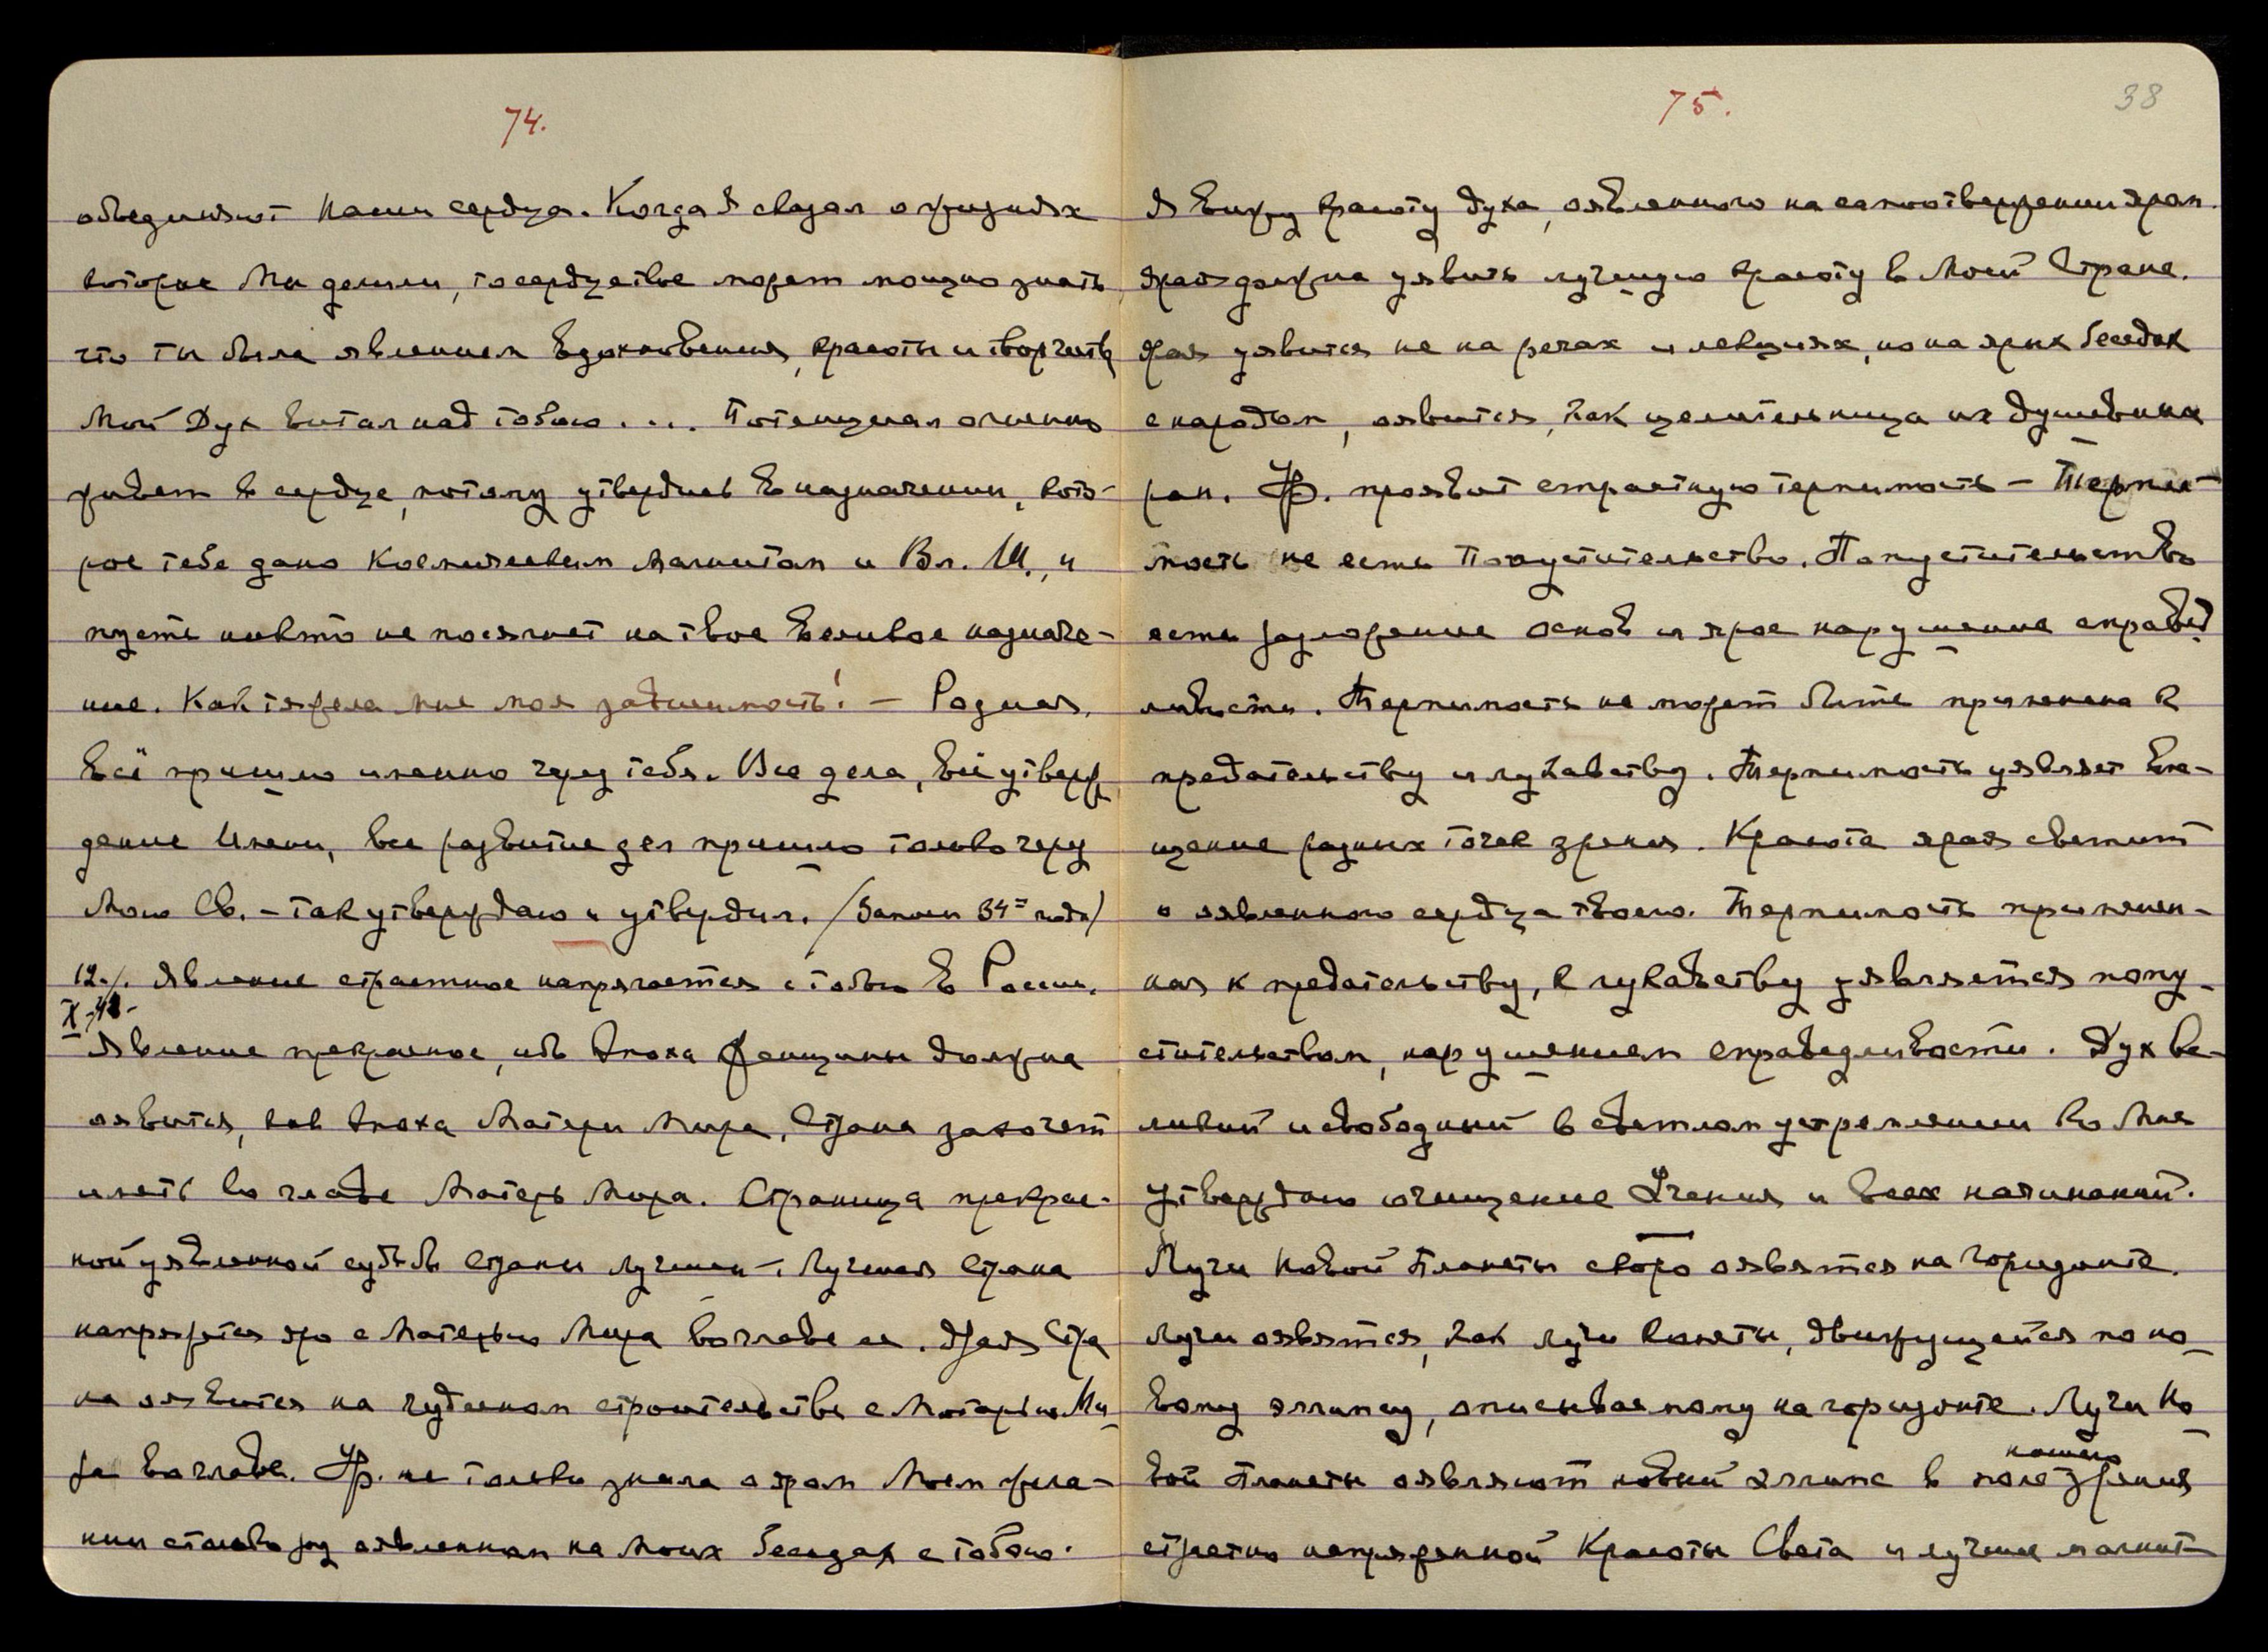 74.
объединяют наши сердца. Когда Я сказал о жизнях
которые Мы делили, то сердце твое может мощно знать
что ты была явлением Вдохновения, красоты и творчества
Мой Дух витал над тобою.... Потенциал огненно
живет в сердце, потому утвердись в назначении, кото-
рое тебе дано Космическим Магнитом и Вл. Ш., и
пусть никто не посягнет на твое великое назначе-
ние. Как тяжела мне моя зависимость! — Родная,
всё пришло именно через тебя. Все дела, всё утверж
дение Имени, все развитие дел пришло только через
Мою Св. — так утверждаю и утвердил. (Запись 34= года)
12./ Явление страстное напрягается с тобою в России.
X-48-
Явление прекрасное, ибо Эпоха Женщины должна
оявится, как Эпоха Матери Мира, Страна захочет
иметь во главе Матерь Мира. Страница прекрас-
ной уявленной судьбы страны лучшей. Лучшая Страна
напряжется яро с Матерью Мира во главе ее. Ярая Стра
на оявится на чудесном строительстве с Матерью Ми
ра во главе. Ур. не только знала о яром Моем жела-
нии столько раз оявленном на Моих беседах с тобою.
75.
38
Я вижу красоту духа, оявленного на самоотвержении яром.
Ярая должна уявить лучшую красоту в Моей Стране.
Ярая уявится не на речах и лекциях, но на ярых беседах
с народом, оявится, как целительница их душевных
ран. Ур. проявит страстную терпимость — Терпи-
мость не есть Попустительство. Попустительство
есть разложение основ и ярое нарушение справед
ливости. Терпимость не может быть применена к
предательству и лукавству. Терпимость уявляет вме-
щение разных точек зрения. Красота ярая светит
о оявленного сердца твоего. Терпимость применен-
ная к предательству, к лукавству уявляется попу-
стительством, нарушением справедливости. Дух ве-
ликий и свободный в светлом устремлении ко Мне
Утверждаю очищение Учения и всех начинаний.
Лучи Новой Планеты скоро оявятся на горизонте.
Лучи оявятся, как лучи кометы, движущейся по но-
вому эллипсу, описываемому на горизонте. Лучи Но
вой Планеты оявляют новый эллипс в поле нашего зрения
страстно напряженной Красоты Света и лучше магнит